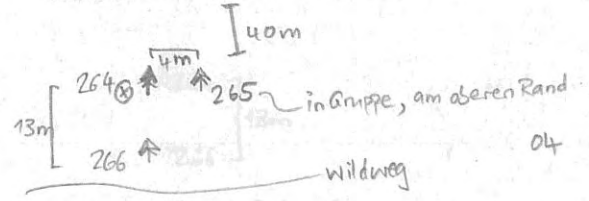 40m
4m
264 265 in Gruppe, am oberen Rand
13m
266 04
Wildweg